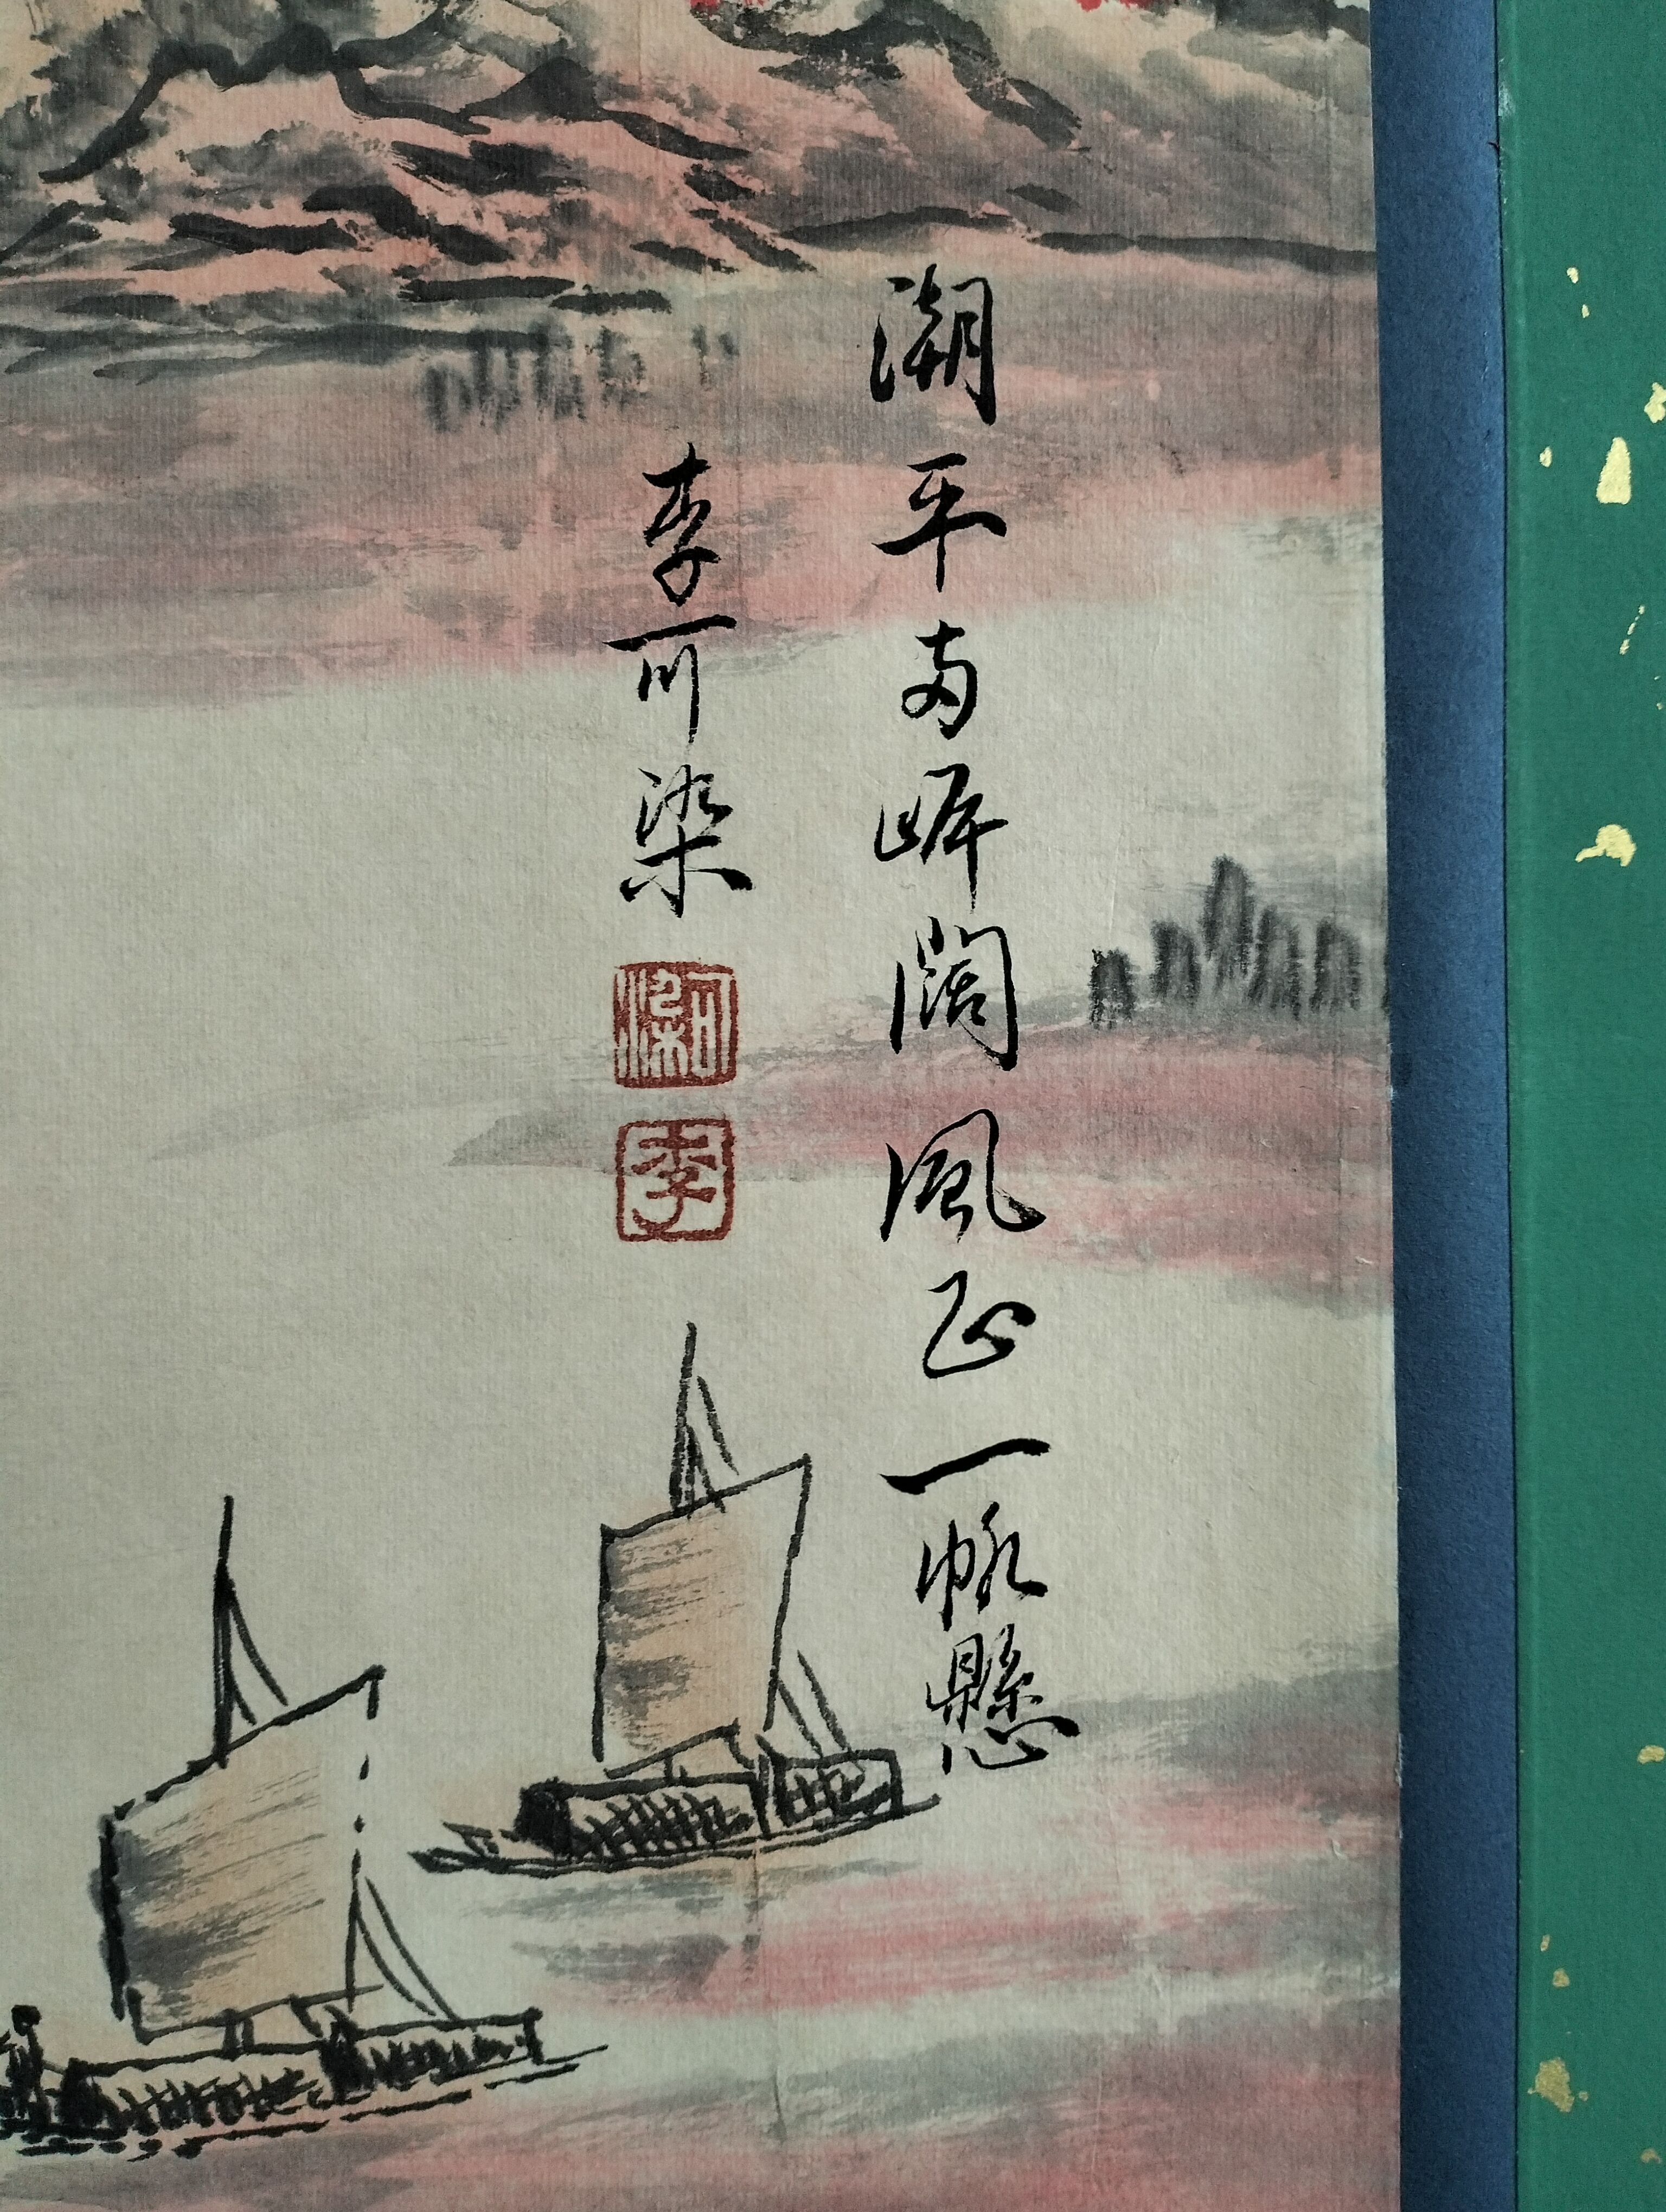 潮平両岸闊風正一帆懸
李可染
可染
李